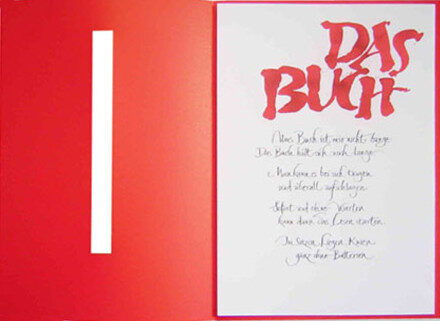 DAS
BUCH
Ums Buch ist mir nicht bange
Das Buch hält sich noch lange
Man kann es bei sich tragen
und überall aufschlagen
Sofort und ohne Warten
kann dann das Lesen starten
Im Sitzen, Liegen, Knien
ganz ohne Batterien